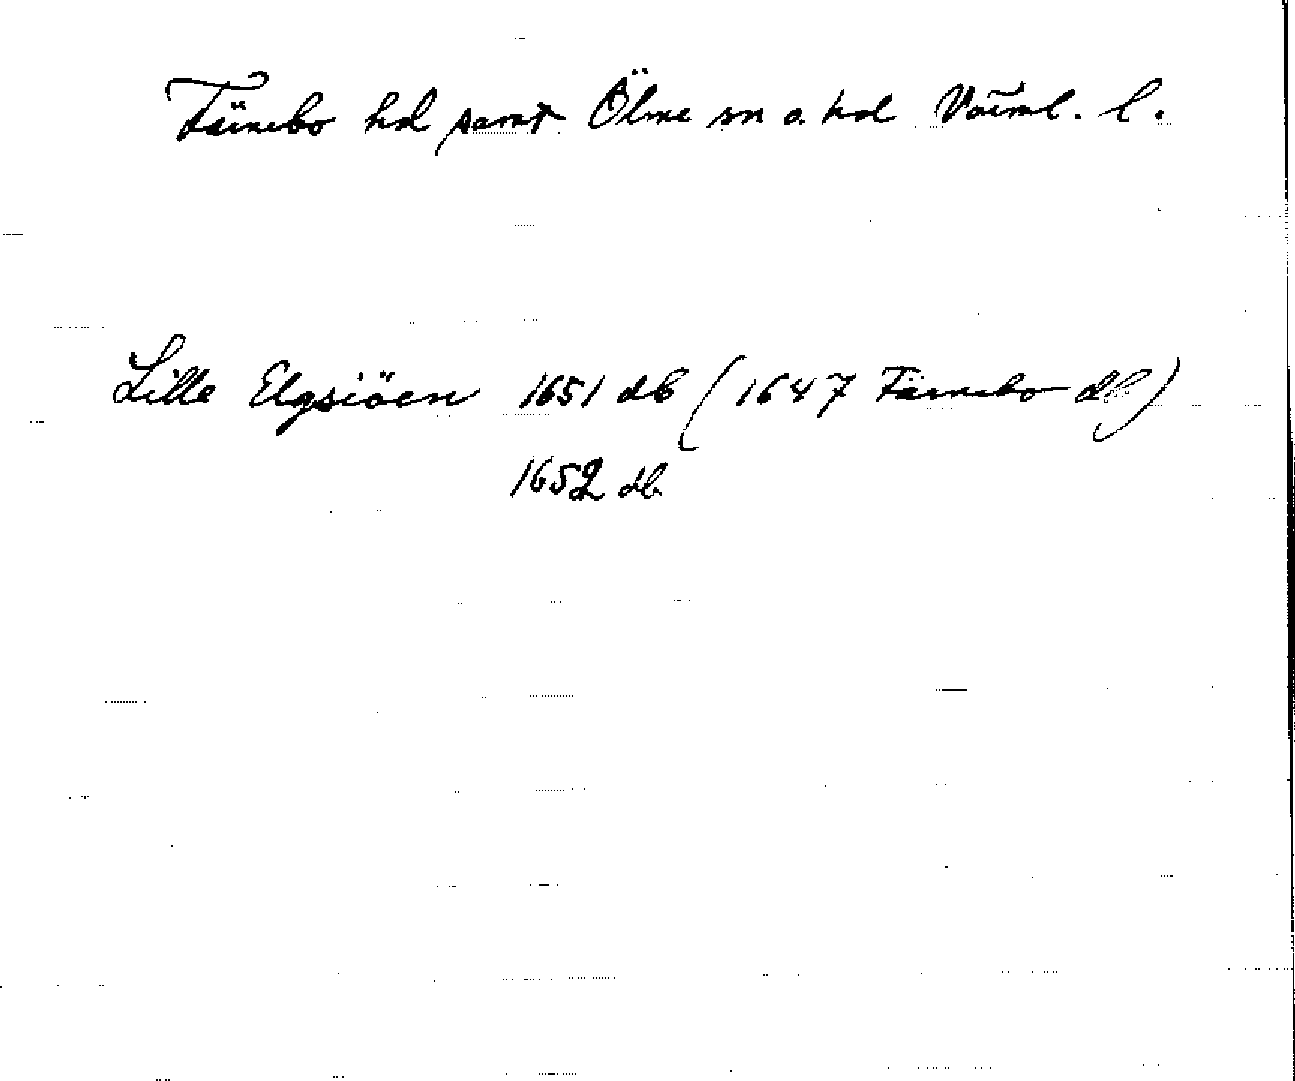 Färnebo hd samt Ölme sn o. hd Värml. l.
Lille Elgsiöen 1651 db (1647 Färnebo db)
1652 db